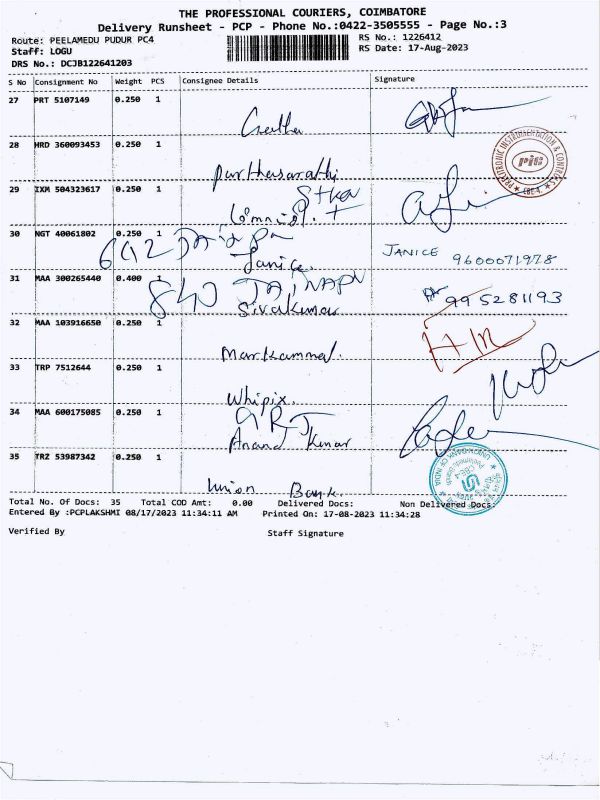 THE PROFESSIONAL COURIERS, COIMBATORE
Delivery Runsheet - PCP - Phone No.:0422-3505555 - Page No.:3
Route: PEELAMEDU PUDUR PC4 RS No.: 1226412
Staff: LOGU RS Date: 17-Aug-2023
DRS No.: DCJB122641203
S No Consignment No Weight PCS Consignee Details Signature
27 PRT 5107149 0.250 1
Geetha
28 HRD 360093453 0.250 1
Parthasarathi
29 IXM 504323617 0.250 1
30 NGT 40061802 0.250 1
Janice
JANICE 9600071978
31 MAA 300265440 0.400 1
840
Sivakumar
995281193
32 MAA 103916650 0.250 1
Markammal.
33 TRP 7512644 0.250 1
Whipix.
34 MAA 600175085 0.250 1
Anand Kumar
35 TRZ 53987342 0.250 1
Union Bank.
UNION BANK OF INDIA
Total No. Of Docs: 35 Total COD Amt: 0.00 Delivered Docs: Non Delivered Docs:
Entered By :PCPLAKSHMI 08/17/2023 11:34:11 AM Printed On: 17-08-2023 11:34:28
Verified By Staff Signature